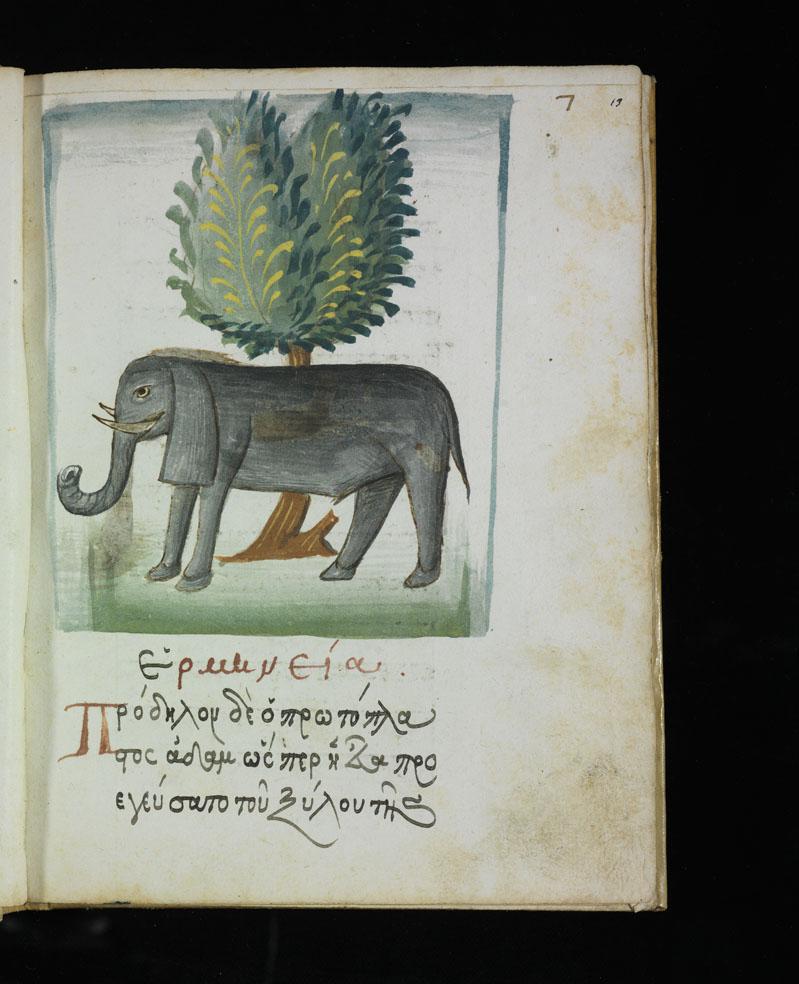 7 13
Ερμηνεία.
Πρόδηλον δὲ ὁ πρωτόπλα
στος ἀδαμ ὥσπερ ἡ Εα προ
εγεύσατο τοῦ ξύλου τῆς